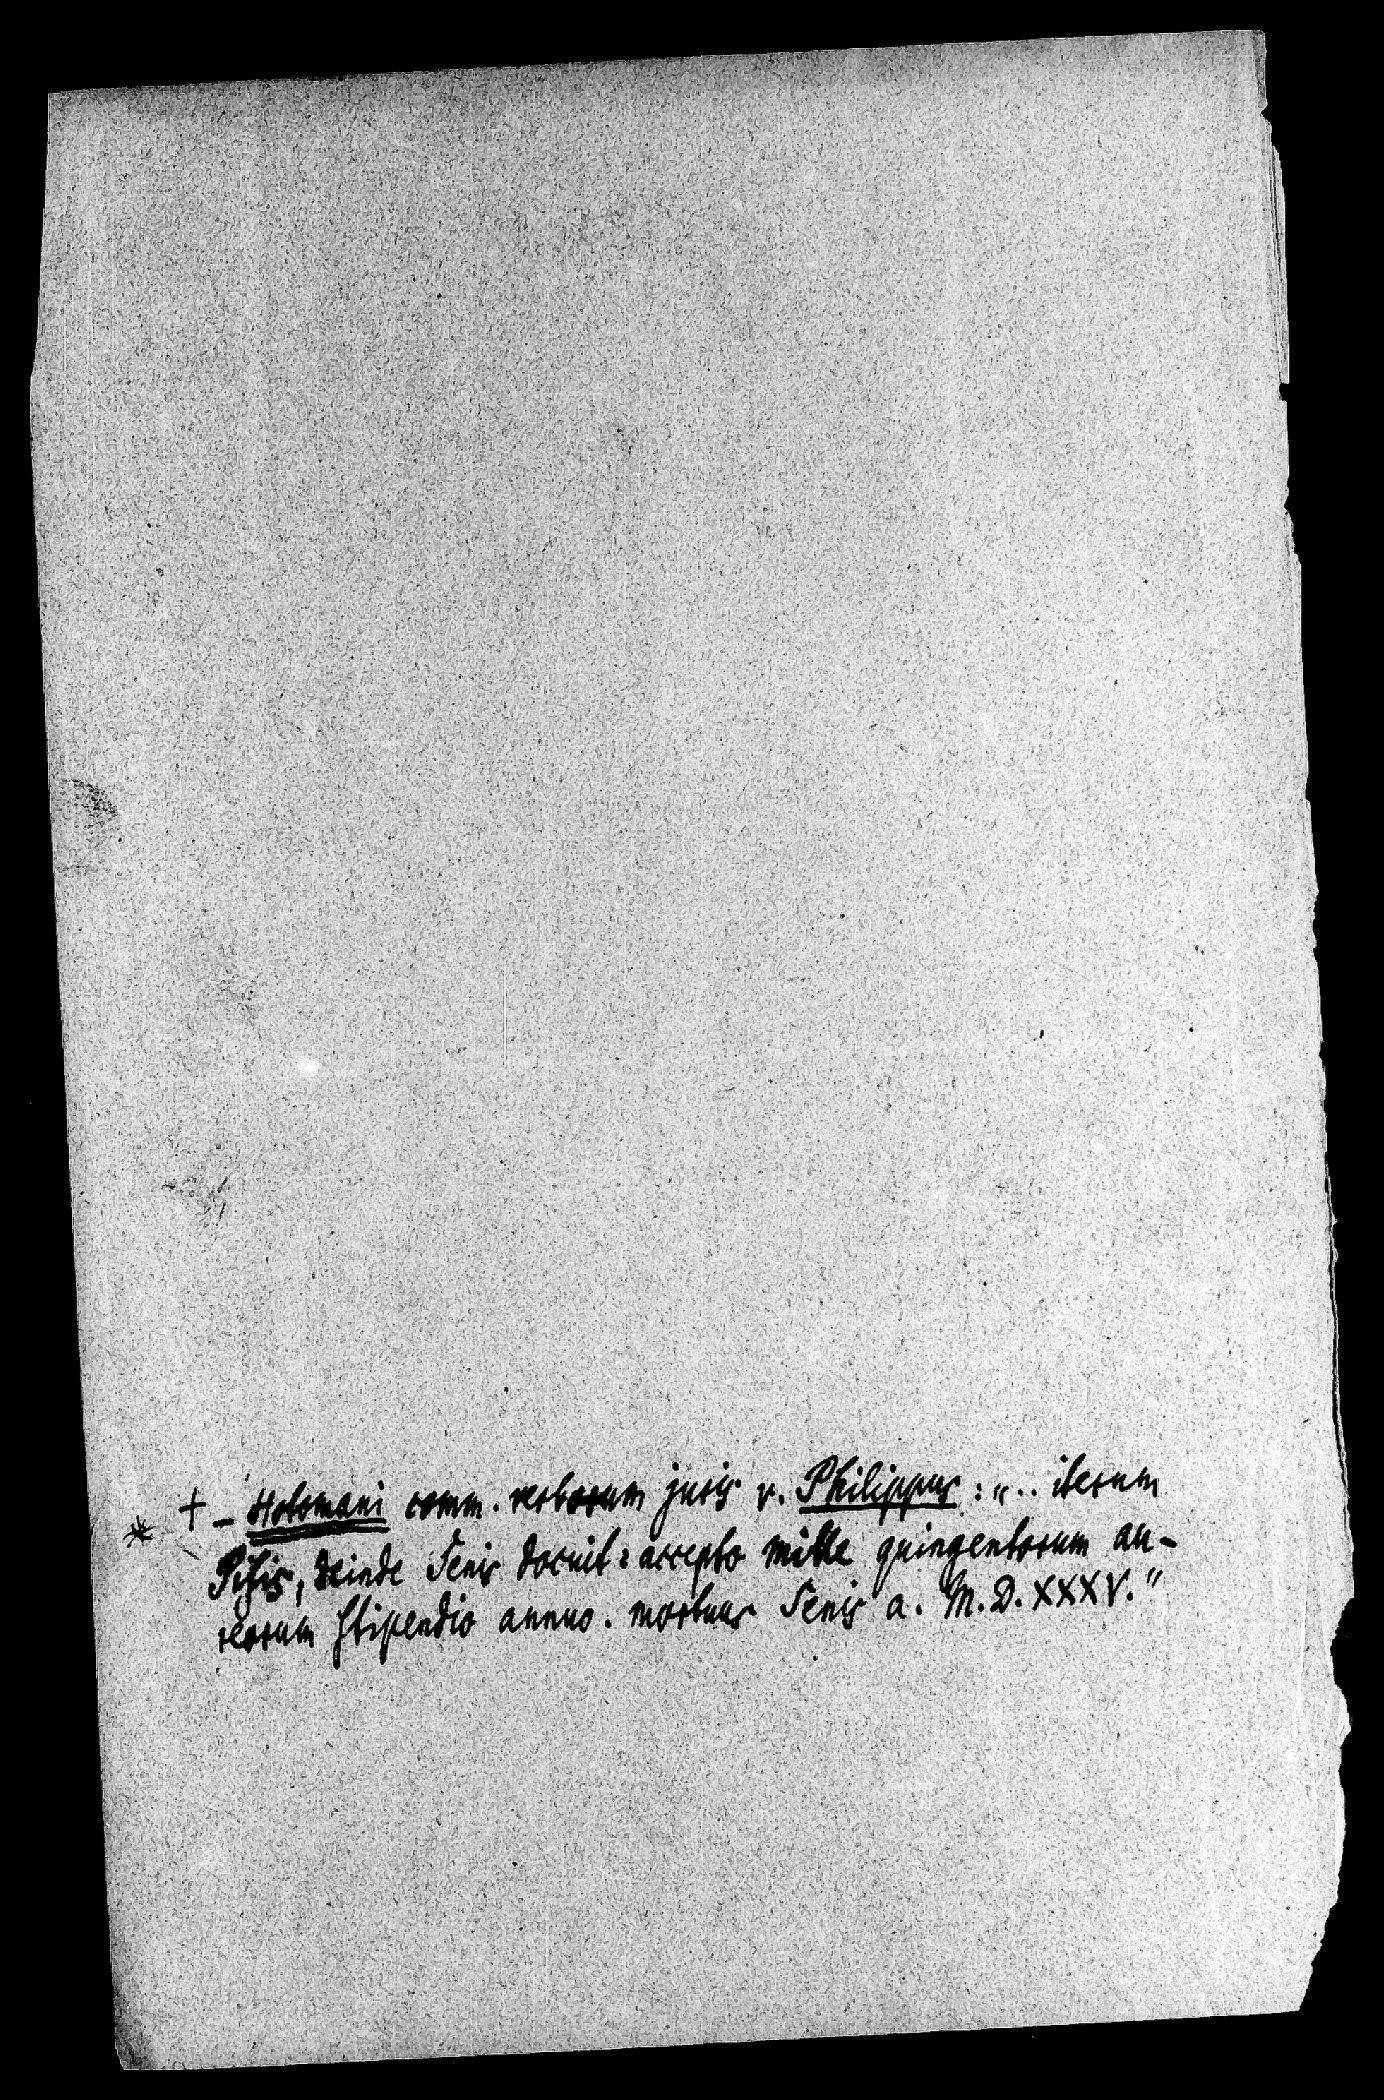 * + – Hotomani comm. verborum juris v. Philippus : „ .. iterum
Pisis, deinde Senis docuit : accepto mille quingentorum au-
reorum stipendio annuo. mortuus Senis a. M.D.XXXV."